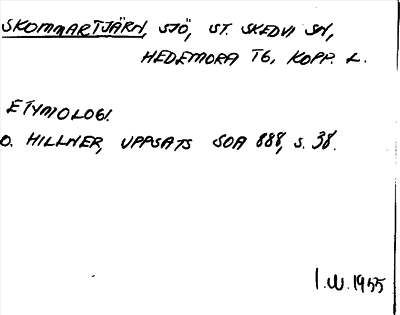 SKOMMARTJÄRN, SJÖ, ST. SKEDVI SN,
HEDEMORA TG, KOPP. L.
ETYMOLOGI.
O. HILLNER, UPPSATS SOA 888, S. 38.
I.W. 1955